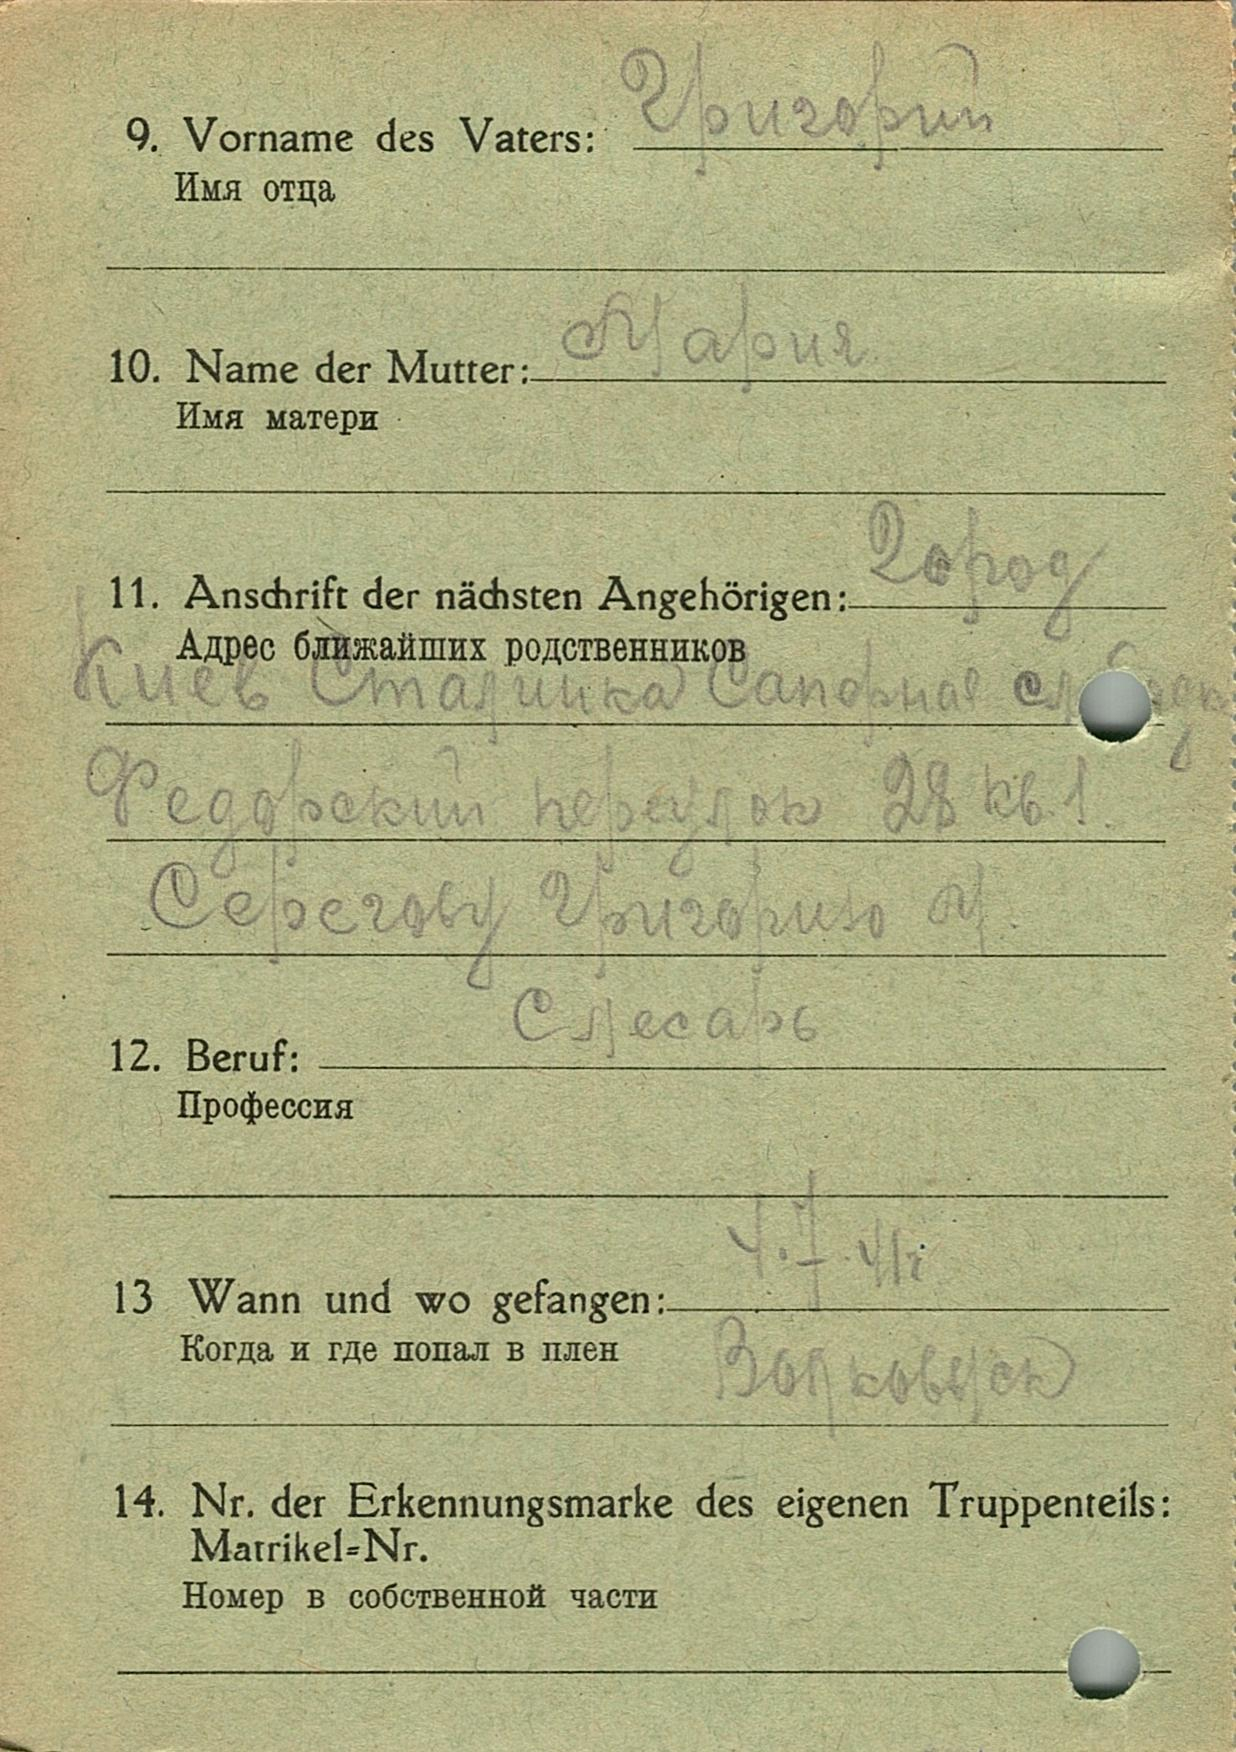 9. Vorname des Vaters: Григорий
Имя отца
10. Name der Mutter: Мария
Имя матери
11. Anschrift der nächsten Angehörigen: Город
Адрес ближайших родственников
Киев Сталинка Саперная
Федорский переулок 28 кв. 1.
Серегову Григорию М.
12. Beruf: Слесарь
Профессия
13 Wann und wo gefangen: 4.7.41г
Когда и где попал в плен
Волковыск
14. Nr. der Erkennungsmarke des eigenen Truppenteils:
Matrikel=Nr.
Номер в собственной части